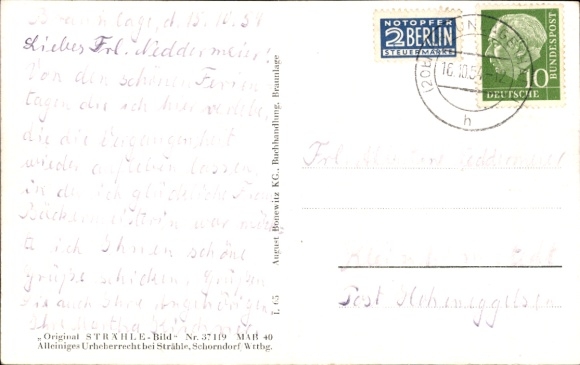 Braunlage, d. 15.10.54
Liebes Frl. Neddermeier!
Von den schönen Ferien
tagen die ich hier verlebe,
die die Vergangenheit
wieder aufleben lassen,
in der ich glückliche Frau
Bäckermeisterin war
ich Ihnen schöne
Grüße schicken. Grüßen
Sie auch Ihre Angehörigen
Ihre Martha
„Original STRÄHLE-Bild" Nr. 37119 MAR 40
Alleiniges Urheberrecht bei Strähle, Schorndorf Wttbg.
August Bonewitz KG., Buchhandlung, Braunlage
NOTOPFER
2 BERLIN
STEUERMARKE
16.10.54
h
10
DEUTSCHE
BUNDESPOST
Frl.
Post Hoheneggelsen